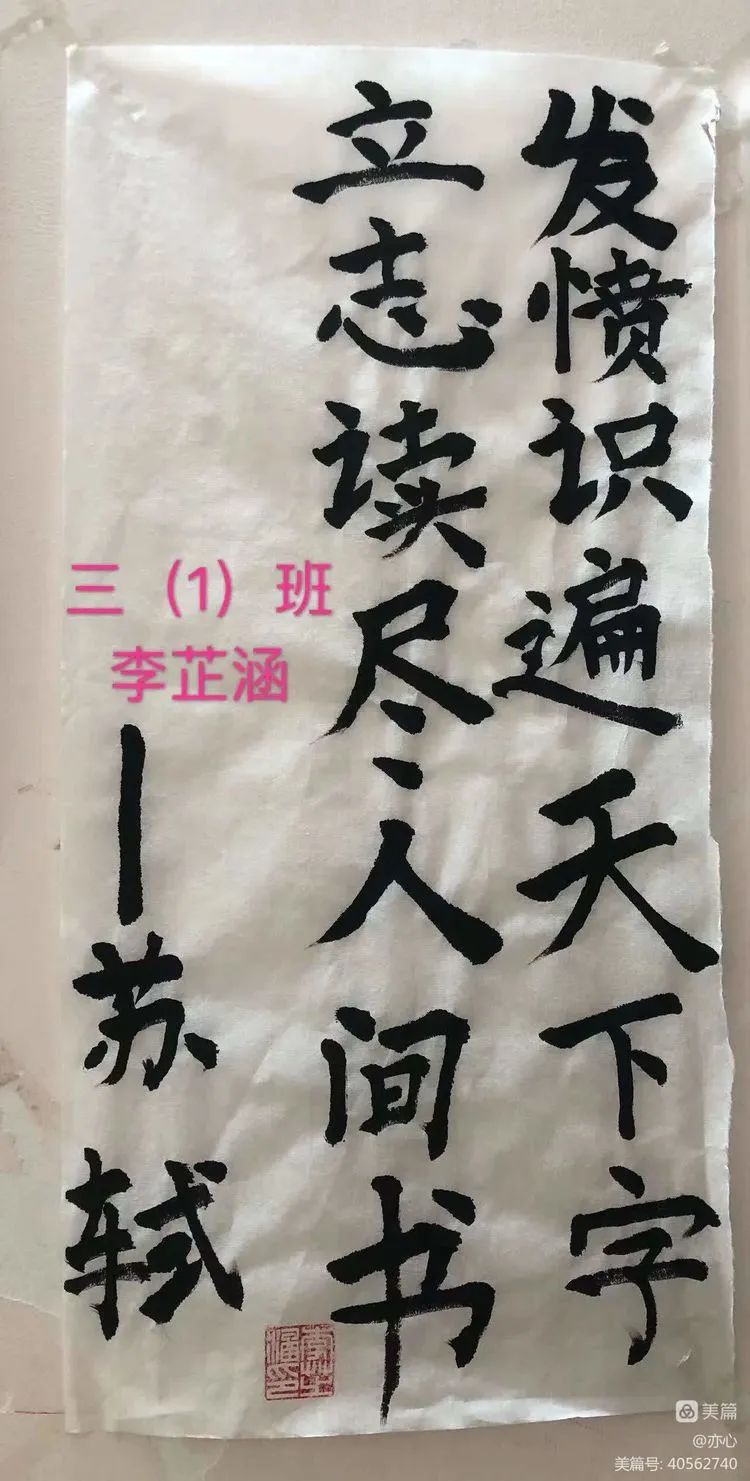 发愤识遍天下字
立志读尽人间书
—苏轼
三（1）班
李芷涵
李芷涵印
美篇
@亦心
美篇号: 40562740